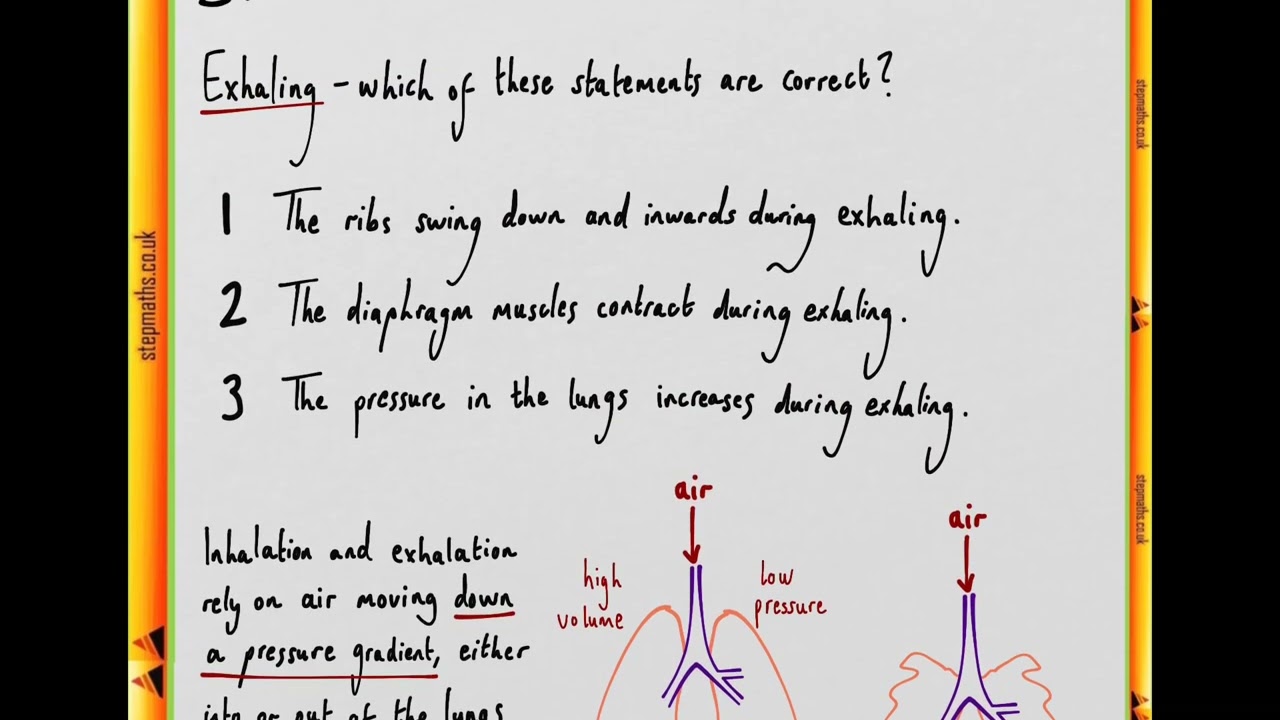 Exhaling - which of these statements are correct?
1 The ribs swing down and inwards during exhaling.
2 The diaphragm muscles contract during exhaling.
3 The pressure in the lungs increases during exhaling.
air
air
Inhalation and exhalation
rely on air moving down
a pressure gradient, either
into or out of the lungs
high
volume
low
pressure
stepmaths.co.uk
stepmaths.co.uk
stepmaths.co.uk